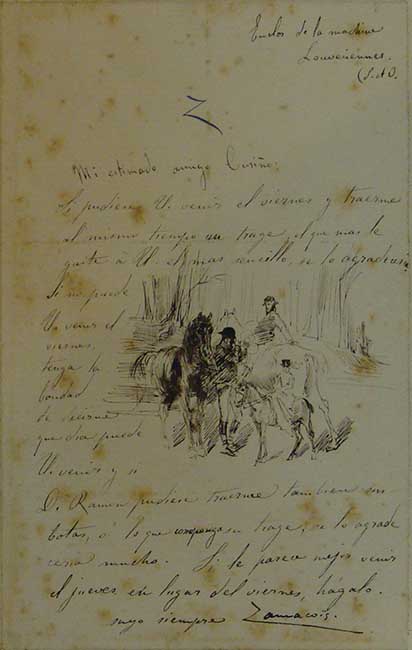 Enclos de la machine
Louveciennes.
(S. et O.
Z
Mi estimado amigo Cusiño:
Si pudiese U. venir el viernes y traerme
al mismo tiempo su trage, el que mas le
guste à U. el mas sencillo, se lo agradeceria
Si no puede
U. venir el
viernes,
tenga la
bondad
de decirme
que dia puede
U. venir y si
D. Ramon pudiese traerme tambien sus
botas, ò lo que componga su trage, se lo agrade
ceria mucho. Si le parece mejor venir
el jueves en lugar del viernes, hágalo.
suyo siempre Zamacoïs.